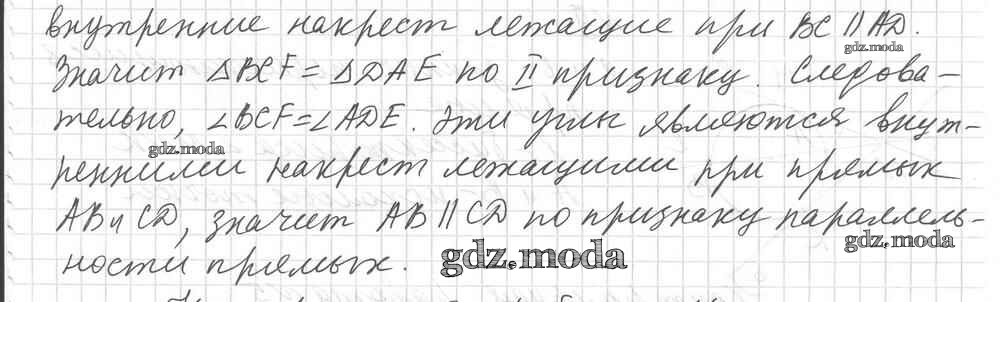 внутренние накрест лежащие при BC || AD.
gdz.moda
Значит △BCF = △DAE по II признаку. Следова-
тельно, ∠BCF = ∠ADE. Эти углы являются внут-
gdz.moda
ренними накрест лежащими при прямых
AB и CD, значит AB || CD по признаку параллель-
gdz.moda
ности прямых.
gdz.moda